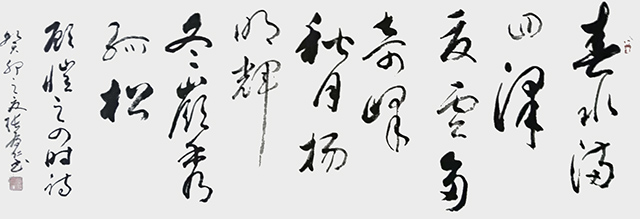 春水满
四泽
夏云多
奇峰
秋月扬
明辉
冬岭秀
孤松
顾恺之四时诗
癸卯之夏